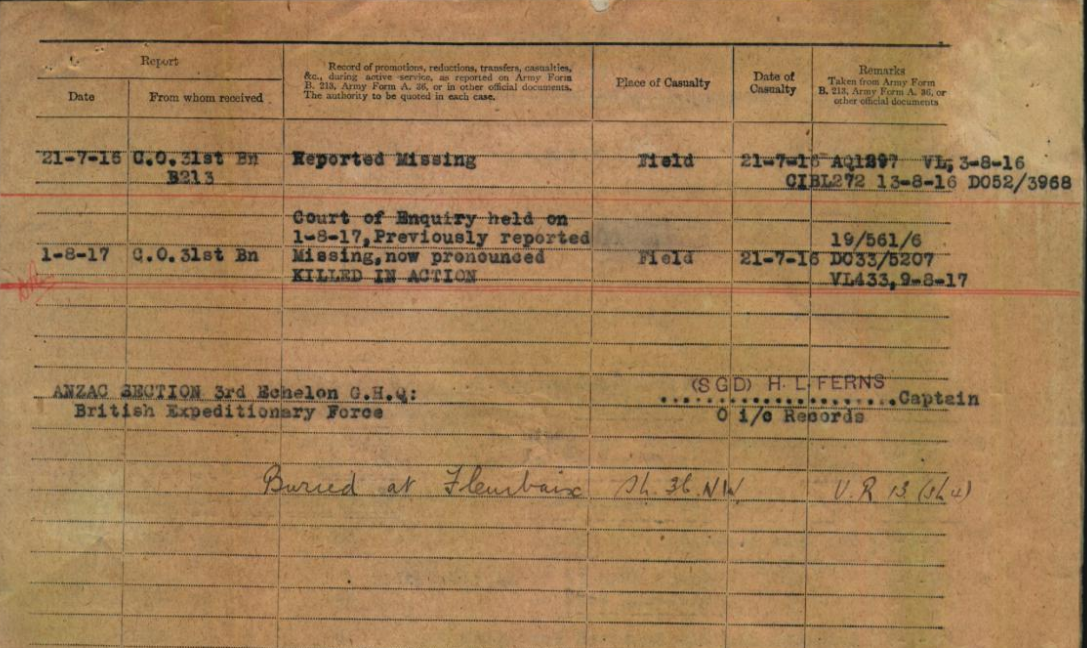 Report
Record of promotions, reductions, transfers, casualties,
&c., during active service, as reported on Army Form
B. 213, Army Form A. 36, or in other official documents.
The authority to be quoted in each case.
Place of Casualty
Date of
Casualty
Remarks
Taken from Army Form
B. 213, Army Form A. 36, or
other official documents
Date
From whom received
21-7-16 C.O.31st Bn Reported Missing Field 21-7-16 AQ1297 VL, 3-8-16
B213 CIBL272 13-8-16 DO52/3968
Court of Enquiry held on
1-8-17, Previously reported 19/561/6
1-8-17 C.O.31st Bn Missing, now pronounced Field 21-7-16 DO33/5207
KILLED IN ACTION VL433, 9-8-17
(SGD) H. L. FERNS
ANZAC SECTION 3rd Echelon G.H.Q: ....................Captain
British Expeditionary Force O i/c Records
Buried at Fleurbaix Sh. 36. NW V.R 13 (sh 4)